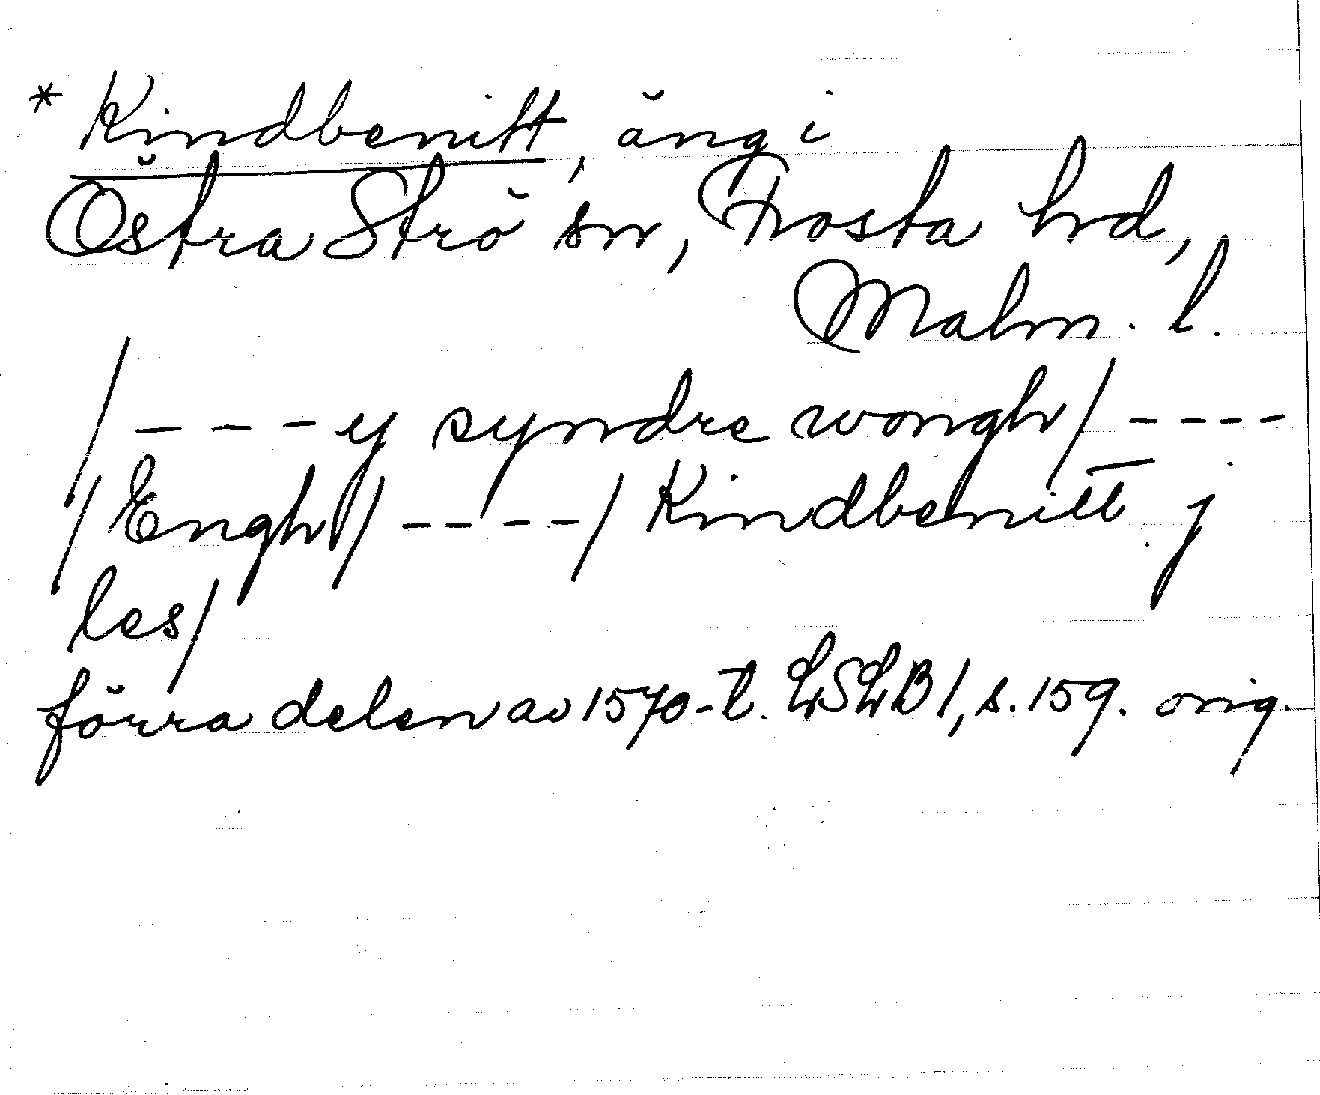 * Kindbenitt, äng i
Östra Strö sn, Frosta hd,
Malm. l.
/ - - - y syndre wongh / - - - -
/ Engh / - - - - / Kindbenitt j
les /
förra delen av 1570-t. LSLB 1, s. 159. orig.